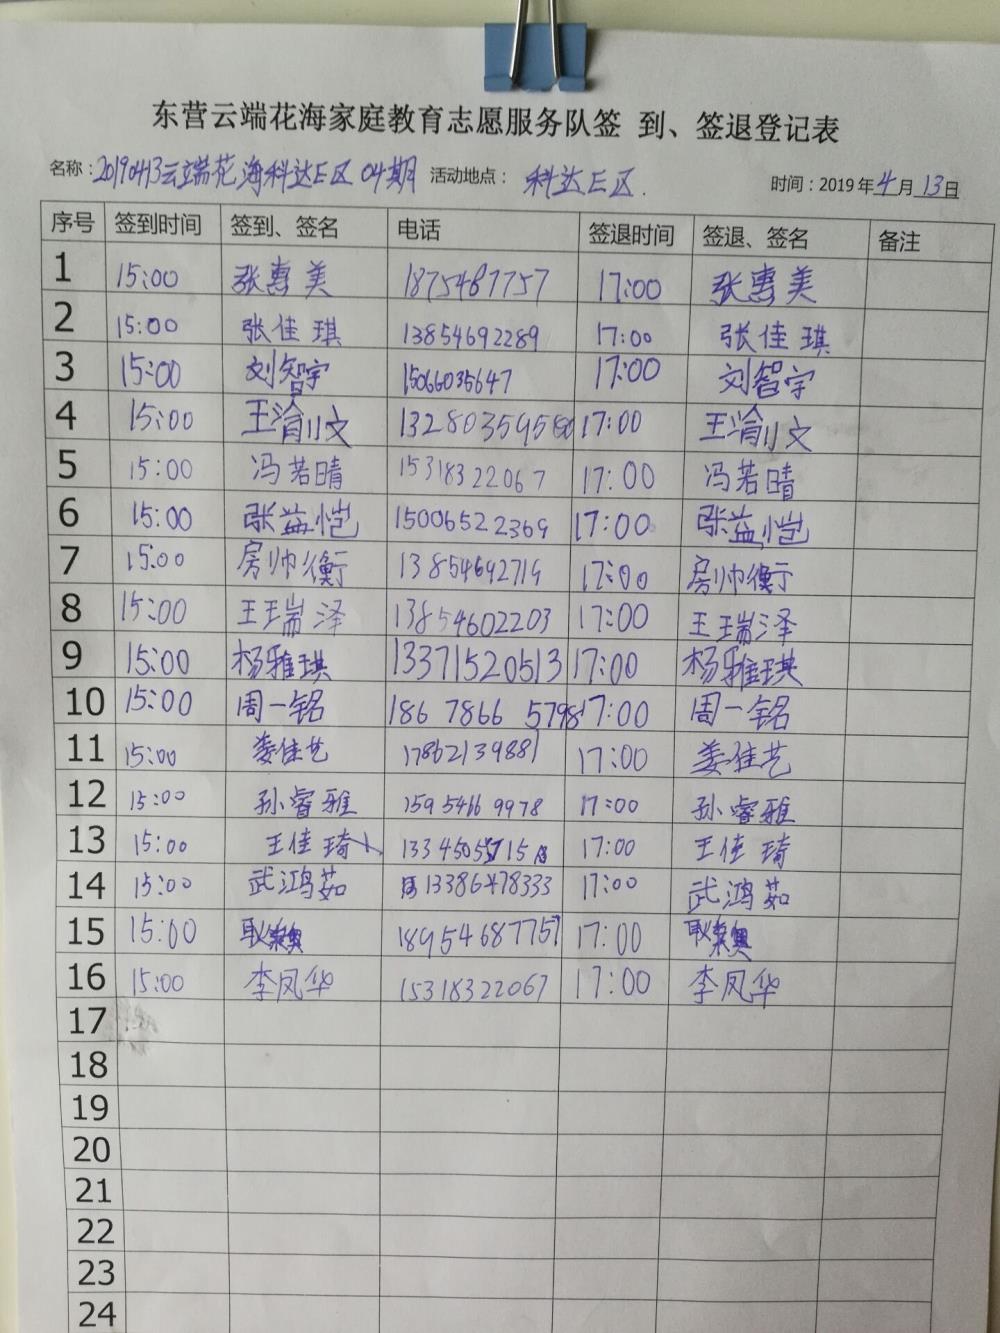 东营云端花海家庭教育志愿服务队签 到、签退登记表
名称：20190413云端花海科达E区04期 活动地点： 科达E区. 时间：2019年4月13日
序号 签到时间 签到、签名 电话 签退时间 签退、签名 备注
1 15:00 张惠美 18754877757 17:00 张惠美
2 15:00 张佳琪 13854692289 17:00 张佳琪
3 15:00 刘智宇 15066035647 17:00 刘智宇
4 15:00 王渝川文 17:00 王渝川文
5 15:00 冯若晴 15318322067 17:00 冯若晴
6 15:00 张益恺 15006522369 17:00 张益恺
7 15:00 房帅衡 13854692719 17:00 房帅衡
8 15:00 王瑞泽 13854602203 17:00 王瑞泽
9 15:00 杨雅琪 13371520513 17:00 杨雅琪
10 15:00 周一铭 186 7866 5798 17:00 周一铭
11 15:00 娄佳艺 17862139881 17:00 娄佳艺
12 15:00 孙睿雅 159 5466 9978 17:00 孙睿雅
13 15:00 王佳琦 17:00 王佳琦
14 15:00 武鸿茹 17:00 武鸿茹
15 15:00 18954687757 17:00
16 15:00 李凤华 15318322067 17:00 李凤华
17
18
19
20
21
22
23
24